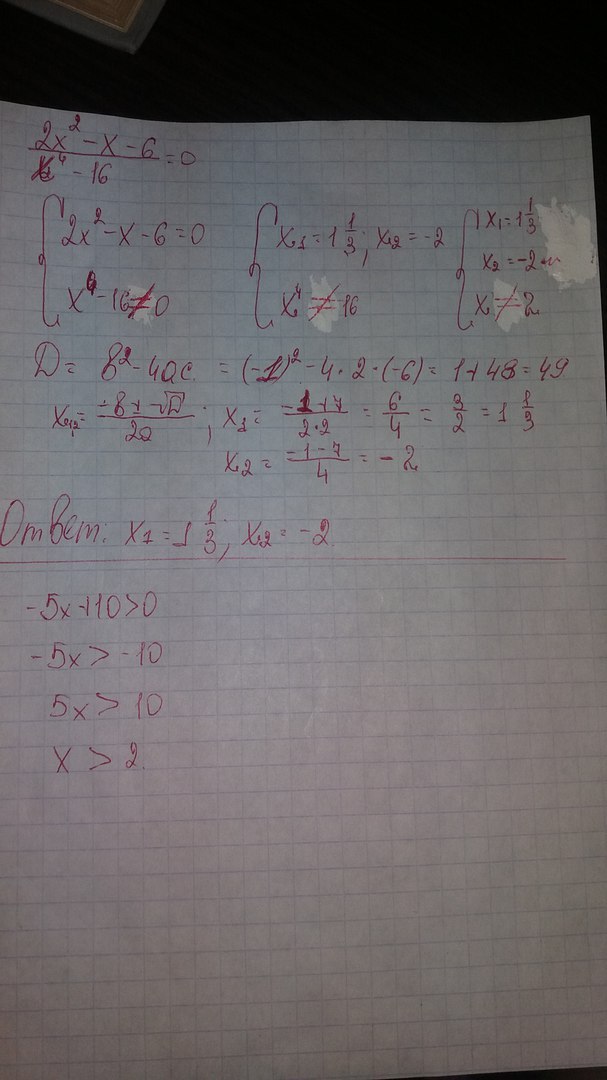 2x² - x - 6 / x⁴ - 16 = 0
{ 2x² - x - 6 = 0 { x₁ = 1 1/3; x₂ = -2 { x₁ = 1 1/3
x₂ = -2
x⁴ - 16 ≠ 0 x⁴ ≠ 16 x ≠ 2
D = b² - 4ac = (-1)² - 4 · 2 · (-6) = 1 + 48 = 49
x₁,₂ = -b ± √D / 2a ; x₁ = -1 + 7 / 2·2 = 6/4 = 3/2 = 1 1/3
x₂ = -1 - 7 / 4 = -2
Ответ: x₁ = 1 1/3; x₂ = -2.
-5x + 10 > 0
-5x > -10
5x > 10
x > 2.